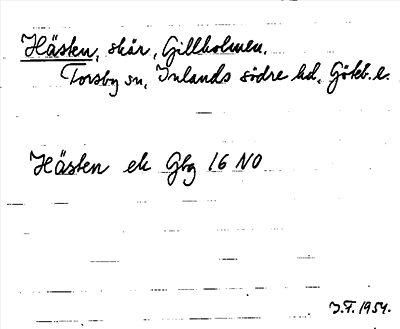 Hästen, skär, Gillholmen.
Torsby sn, Inlands södre hd, Göteb. l.
Hästen ek Gbg 16 NO
J.F. 1954.